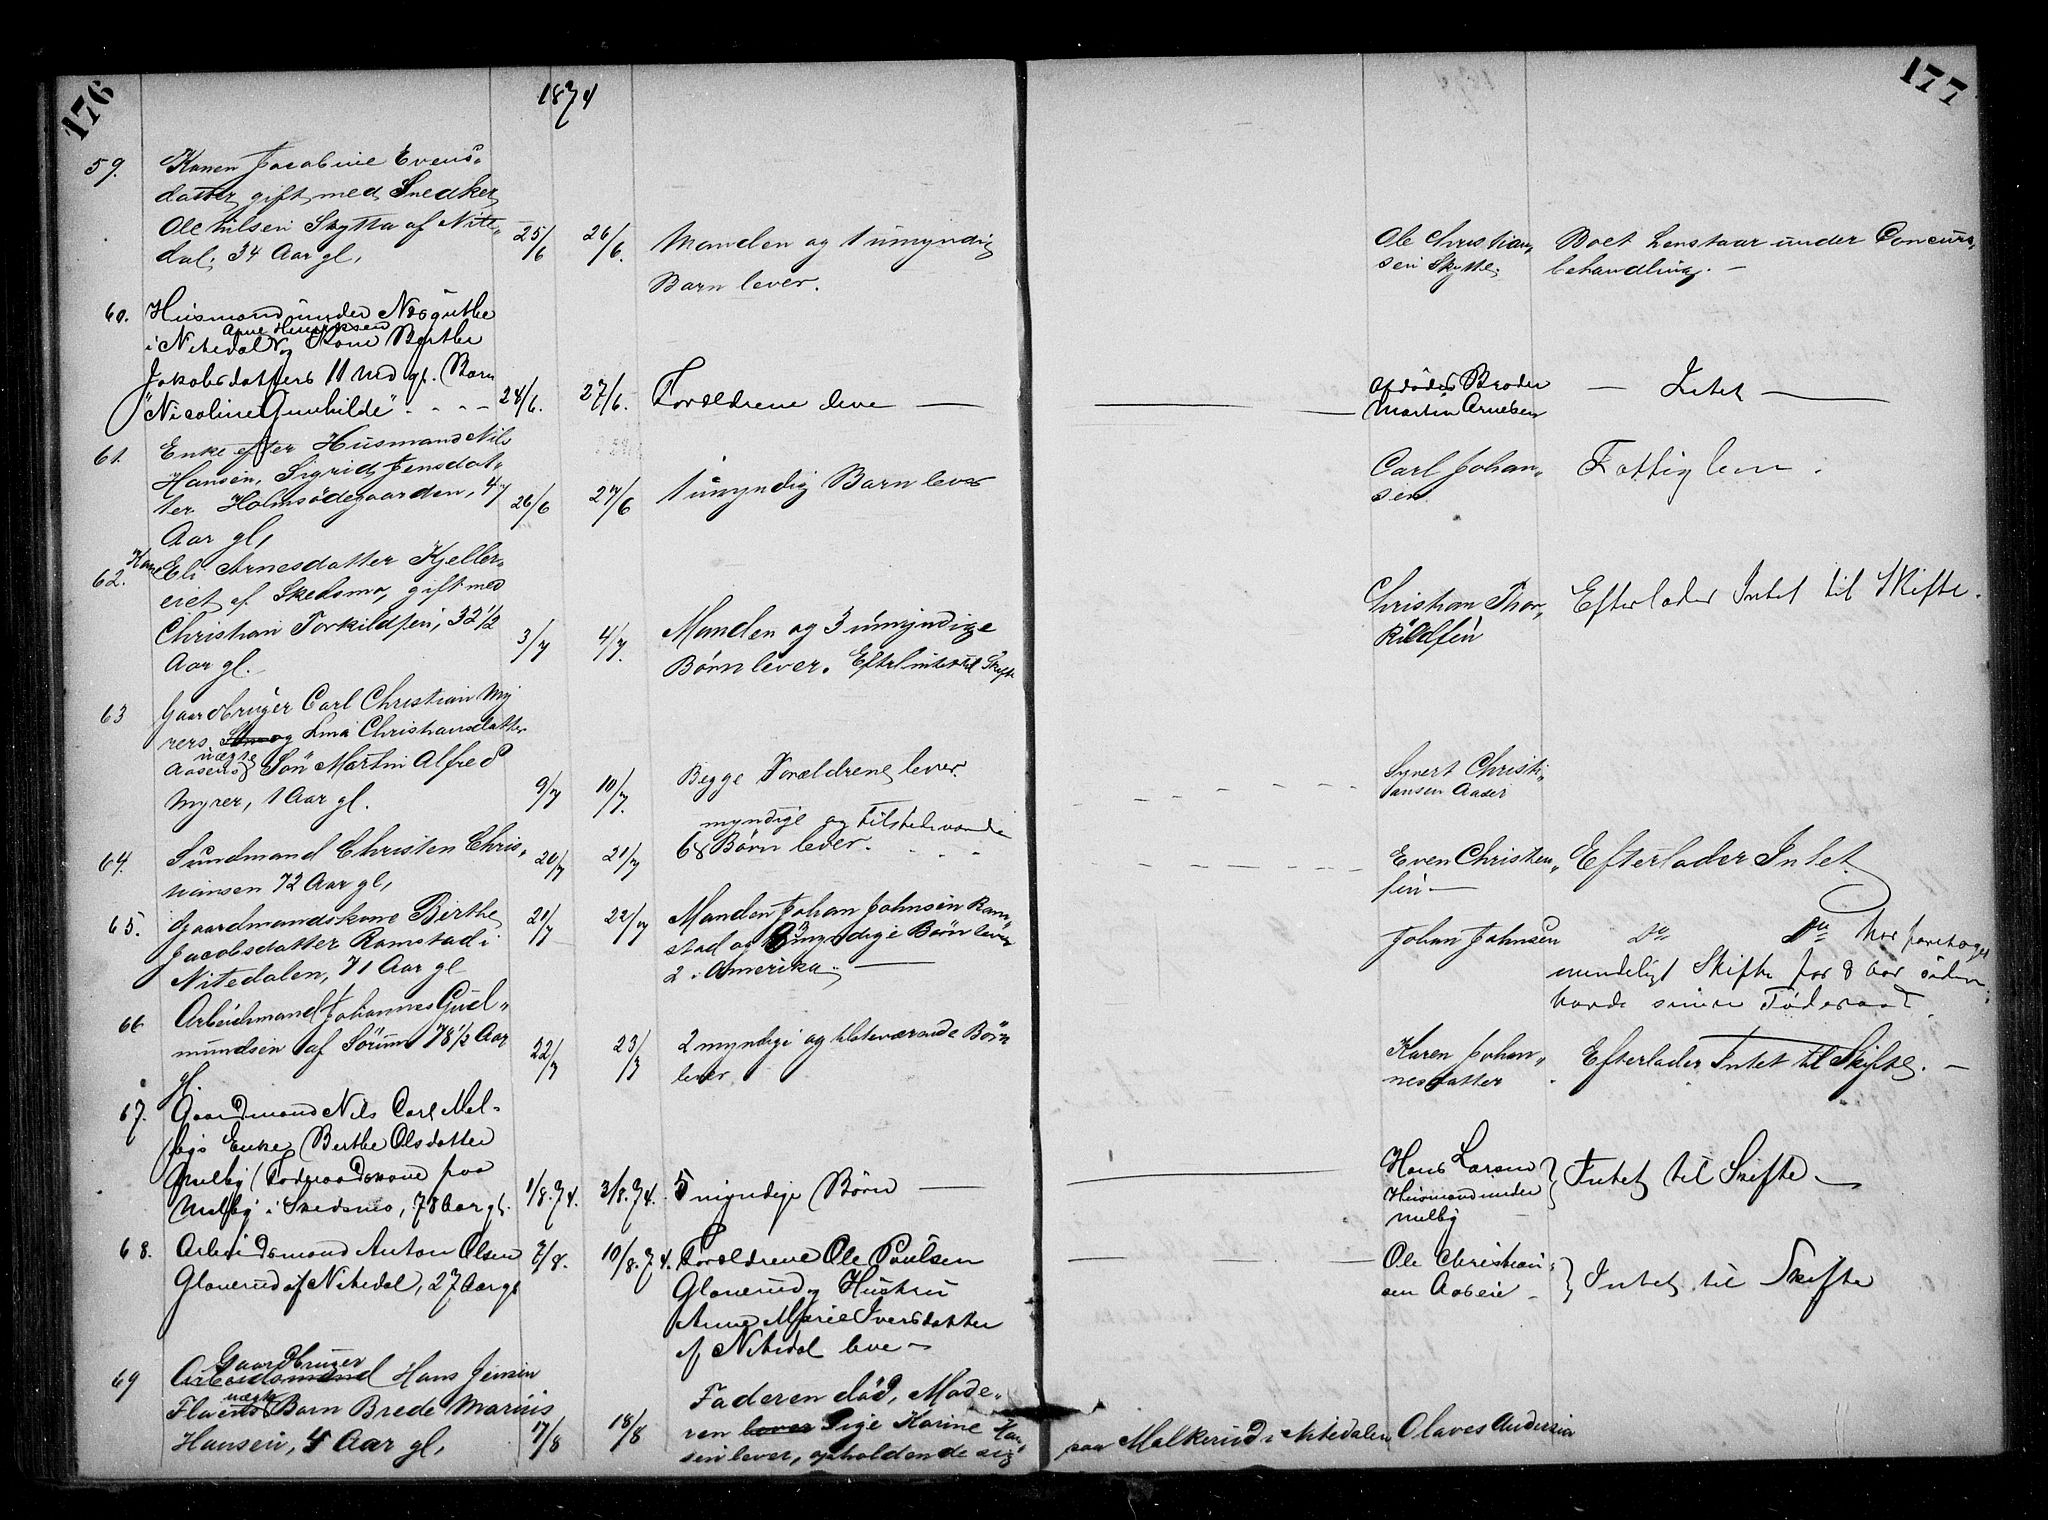 176
1874
177
59. Konen Jacobine Evens-
datter gift med Snedker
Ole Nilsen Skytta af Nitte-
dal, 34 Aar gl, 25/6 26/6. Manden og 1 umyndig
Barn lever.
Ole Christian-
sen Skytte.
Boet henstaar under Concurs-
behandling. —
60. Husmand under
i Nitedal Arne Henriksen og Kone Berthe
Jakobsdatters 11 Md gl. Barn
"Nicoline Gunhilde" - - - 24/6. 27/6. Forældrene leve —
Afdødes Broder
Martin Arnesen
— Intet —
61. Enke efter Husmand Nils
Hansen, Sigrid Jensdat-
ter Holmsødegaarden, 47
Aar gl, 26/6 27/6 1 umyndig Barn lever
Carl Johan-
sen
Fattiglem.
62. Kone Eli Arnesdatter Kjeller-
eiet af Skedsmo, gift med
Christian Torkildsen, 32 1/2
Aar gl. 3/7 4/7. Manden og 3 umyndige
Børn lever. Efterl intet til Skifte
Christian Thor-
kildsen
Efterlader Intet til Skifte.
63 Gaardbruger Carl Christian My
rers og Lina Christiansdatter
Aasens uægte Søn Martin Alfred
Myrer, 1 Aar gl. 9/7 10/7. Begge Forældrene lever.
Syvert Christi-
ansen Aaser
64. Sundmand Christen Chris-
tiansen 72 Aar gl, 20/7 21/7 6 myndige og tilstedeværende
Børn lever.
Even Christen-
sen —
Efterlader Intet
65. Gaardmandskone Birthe
Jacobsdatter Ramstad i
Nitedalen, 71 Aar gl 21/7 22/7 Manden Johan Johnsen Ram-
stad og myndige Børn lever
2 i Amerika. —
Johan Johnsen
Do Do har foretaget
mindeligt Skifte for 8 Aar siden;
havde Føderaad.
66 Arbeidsmand Johannes Gud-
mundsen af Sørum 78 1/2 Aar
gl. 22/7 23/7 2 myndige og tilstæværende Børn
lever
Karen Johan-
nesdatter
Efterlader Intet til Skifte. —
67. Gaardmand Nils Carl Mel-
bys Enke Berthe Olsdatter
Melby (Føderaadskone paa
Melby i Skedsmo, 78 Aar gl. 1/8.74. 3/8.74. 5 myndige Børn —
Hans Larsen
Husmand under
Melby
Intet til Skifte —
68. Arbeidsmand Anton Olsen
Glanerud af Nitedal, 27 Aar gl 7/8. 10/8.74. Forældrene Ole Paulsen
Glanerud og Hustru
Anne Marie Iversdatter
af Nitedal leve —
Ole Christian-
sen Aaseie —
Intet til Skifte
69 Arbeidsmand Gaardbruger Hans Jensen
Flaens uægte Barn Brede Marius
Hansen, 4 Aar gl, 17/8 18/8 Faderen død, Mode-
ren lever Pige Karine Han-
sen lever, opholdende sig
paa Melkerud i Nitedalen Olaves Andersen